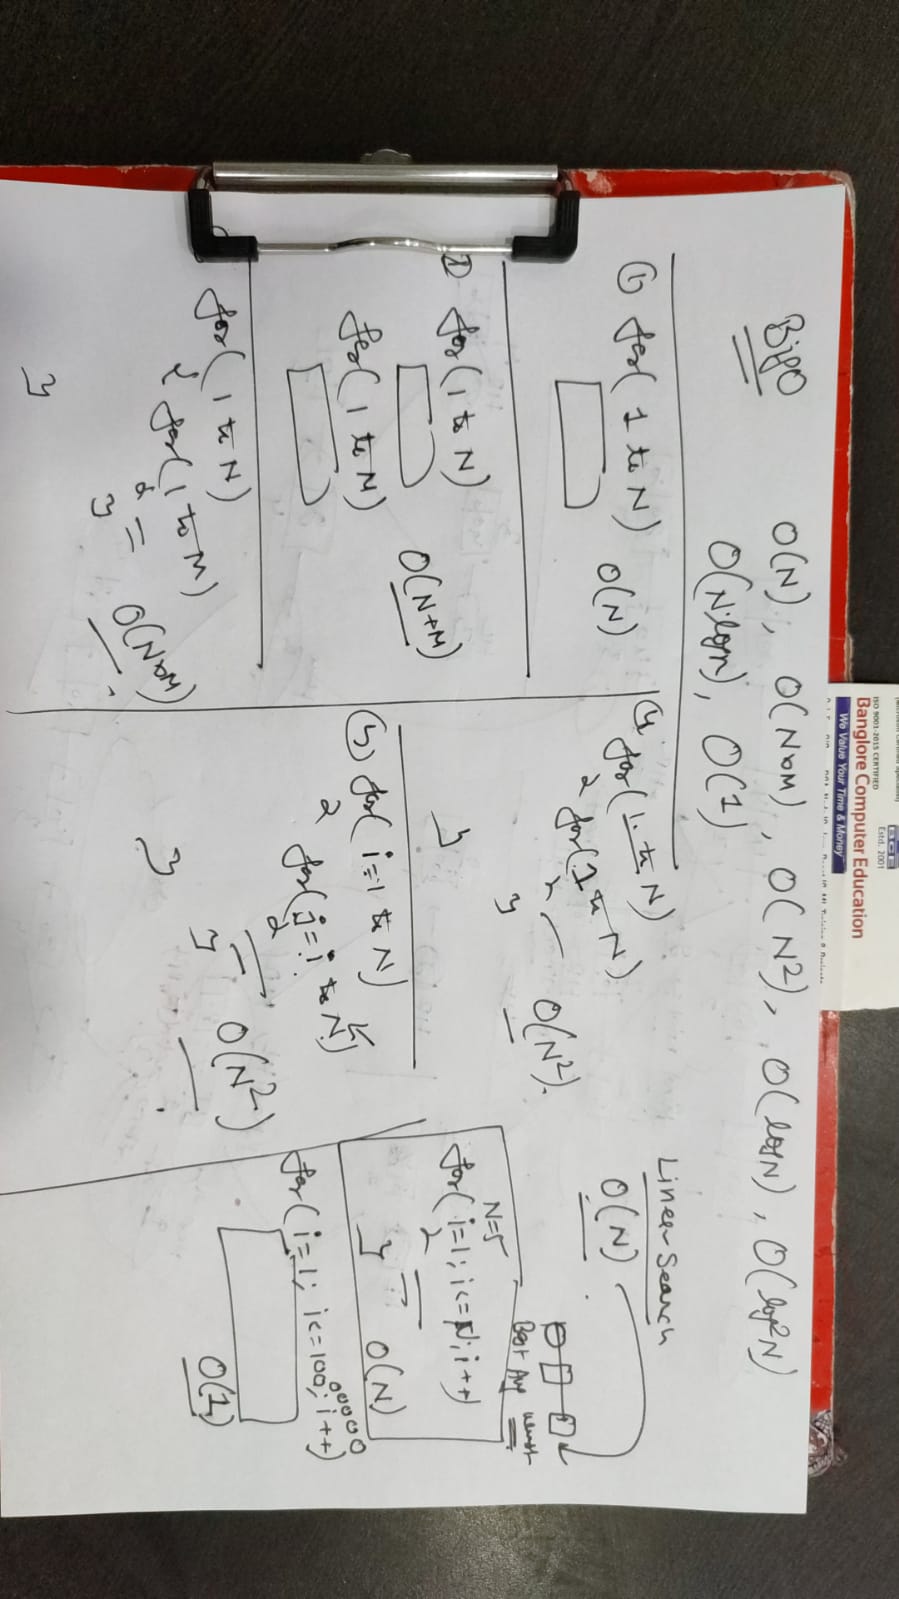 BCE
Estd. 2001
ISO 9001-2015 CERTIFIED
Banglore Computer Education
We Value Your Time & Money
BigO
O(N), O(N*M), O(N2), O(logN), O(log2N)
O(N·logn), O(1)
① for( 1 to N)
O(N)
② for(1 to N)
O(N+M)
for(1 to M)
for(1 to N)
{ for(1 to M)
{
}
O(N*M)
}
④ for(1. to N)
{ for(1 to N)
{
}
O(N2).
}
⑤ for( i=1 to N)
{
for(j=i to N)
{
}
O(N2)
}
Linear Search
O(N)
Best Avg worst
N=5
for( i=1; i<=N; i++)
{
}
O(N)
00000
for( i=1; i<=100; i++)
O(1)